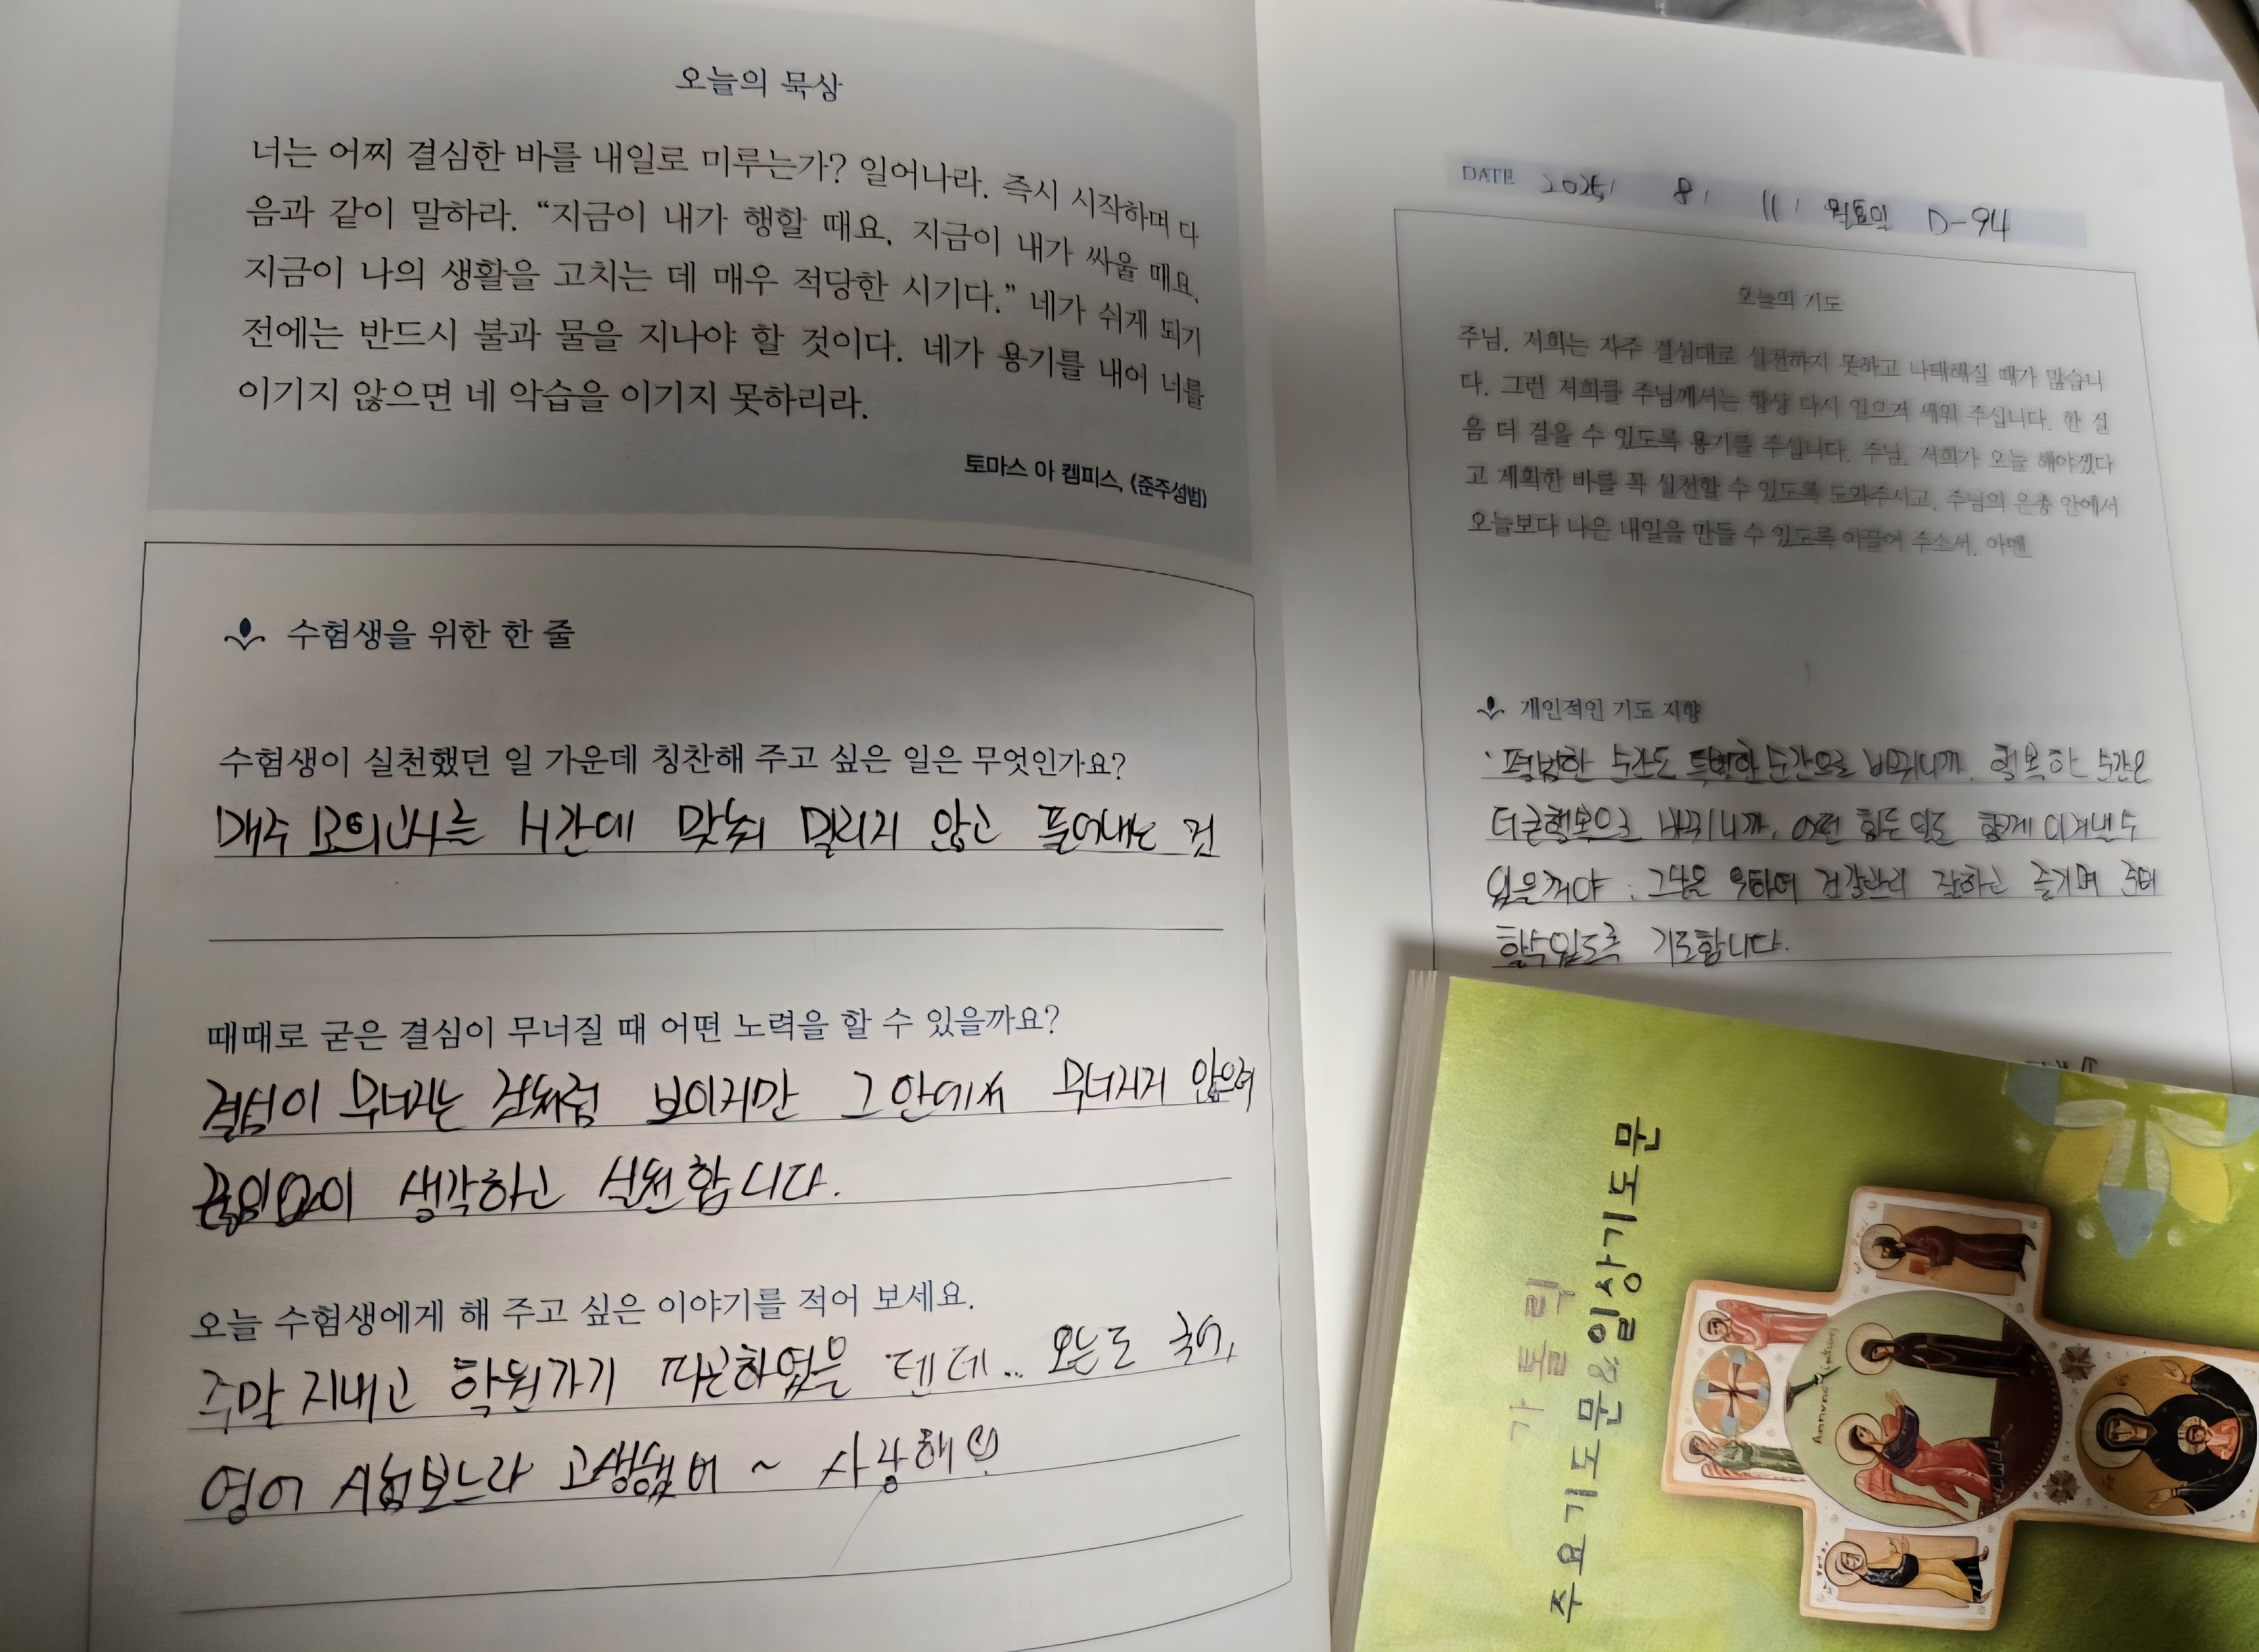 오늘의 묵상
너는 어찌 결심한 바를 내일로 미루는가? 일어나라. 즉시 시작하며 다
음과 같이 말하라. “지금이 내가 행할 때요, 지금이 내가 싸울 때요,
지금이 나의 생활을 고치는 데 매우 적당한 시기다.” 네가 쉬게 되기
전에는 반드시 불과 물을 지나야 할 것이다. 네가 용기를 내어 너를
이기지 않으면 네 악습을 이기지 못하리라.
토마스 아 켐피스, 《준주성범》
수험생을 위한 한 줄
수험생이 실천했던 일 가운데 칭찬해 주고 싶은 일은 무엇인가요?
매주 모의고사를 시간에 맞춰 밀리지 않고 풀어내는 것
때때로 굳은 결심이 무너질 때 어떤 노력을 할 수 있을까요?
결심이 무너지는 것처럼 보이지만 그 안에서 무너지지 않으려
끊임없이 생각하고 실천합니다.
오늘 수험생에게 해 주고 싶은 이야기를 적어 보세요.
주말 지내고 학원가기 피곤하였을 텐데.. 오늘도 국어,
영어 시험보느라 고생했어 ~ 사랑해
DATE 2025/ 8/ 11/ 월요일 D-94
오늘의 기도
주님, 저희는 자주 결심대로 실천하지 못하고 나태해질 때가 많습니
다. 그런 저희를 주님께서는 항상 다시 일으켜 세워 주십니다. 한 걸
음 더 걸을 수 있도록 용기를 주십니다. 주님, 저희가 오늘 해야겠다
고 계획한 바를 꼭 실천할 수 있도록 도와주시고, 주님의 은총 안에서
오늘보다 나은 내일을 만들 수 있도록 이끌어 주소서. 아멘.
개인적인 기도 지향
· 평범한 순간도 특별한 순간으로 바뀌니까. 행복한 순간은
더 큰행복으로 바뀌니까, 어떤 힘든 일도 함께 이겨낼 수
있을꺼야. 위하여 건강관리 잘하고 즐기며
할수있도록 기도합니다.
가톨릭
주요기도문와 일상기도문